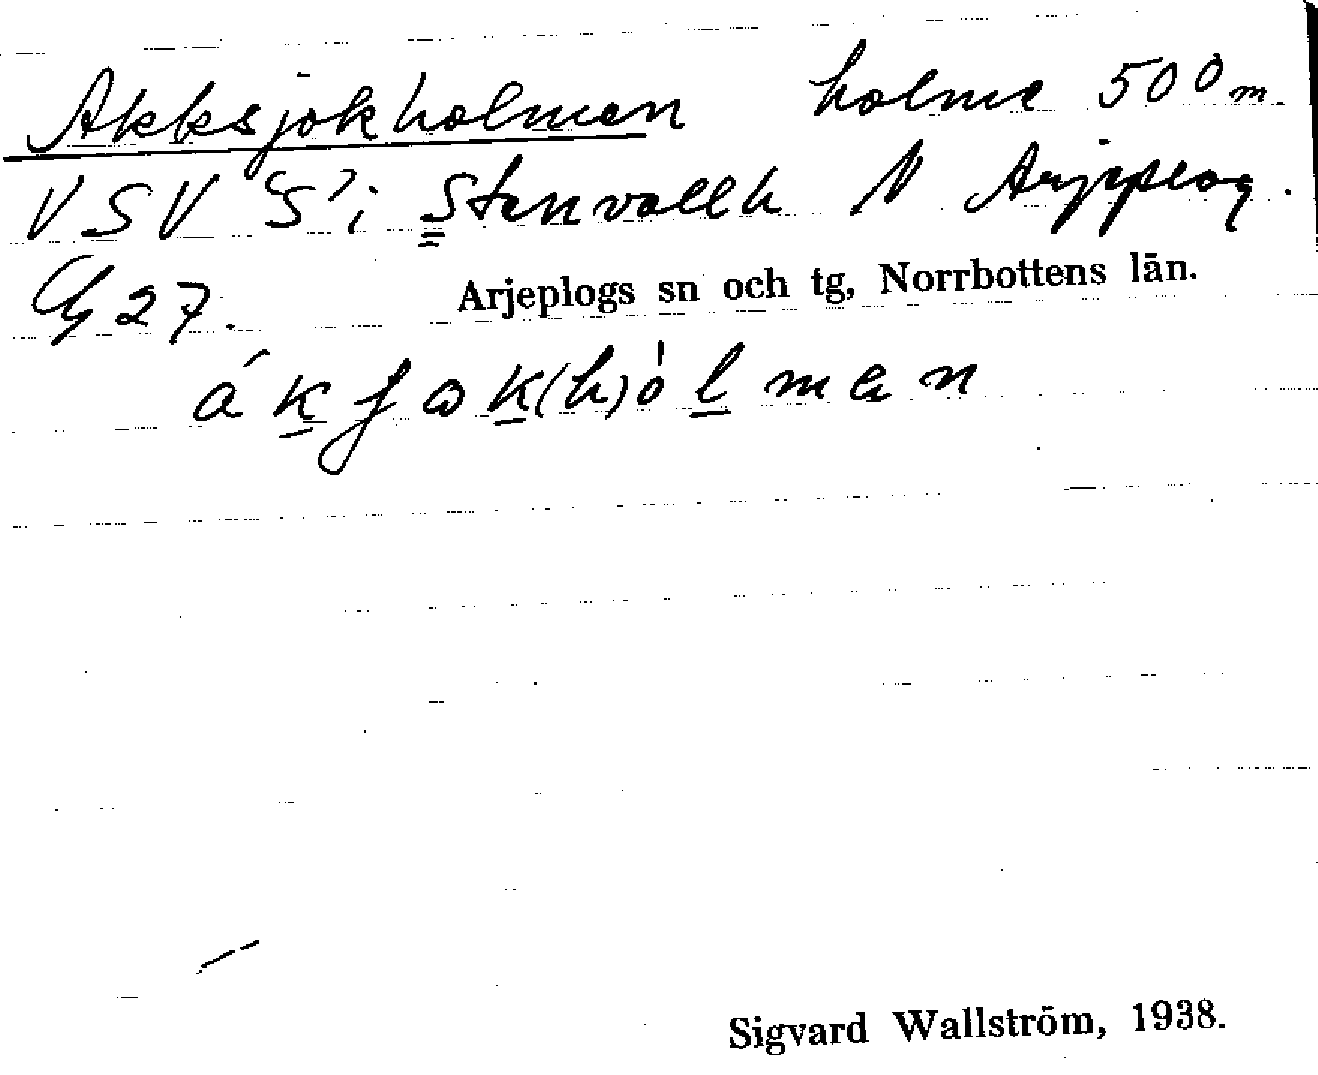 Akksjokholmen holme 500 m.
VSV 'S' i Stenvallh N Arjeplog.
G 27.
Arjeplogs sn och tg, Norrbottens län.
ákʃωk(h)ólmen
Sigvard Wallström, 1938.